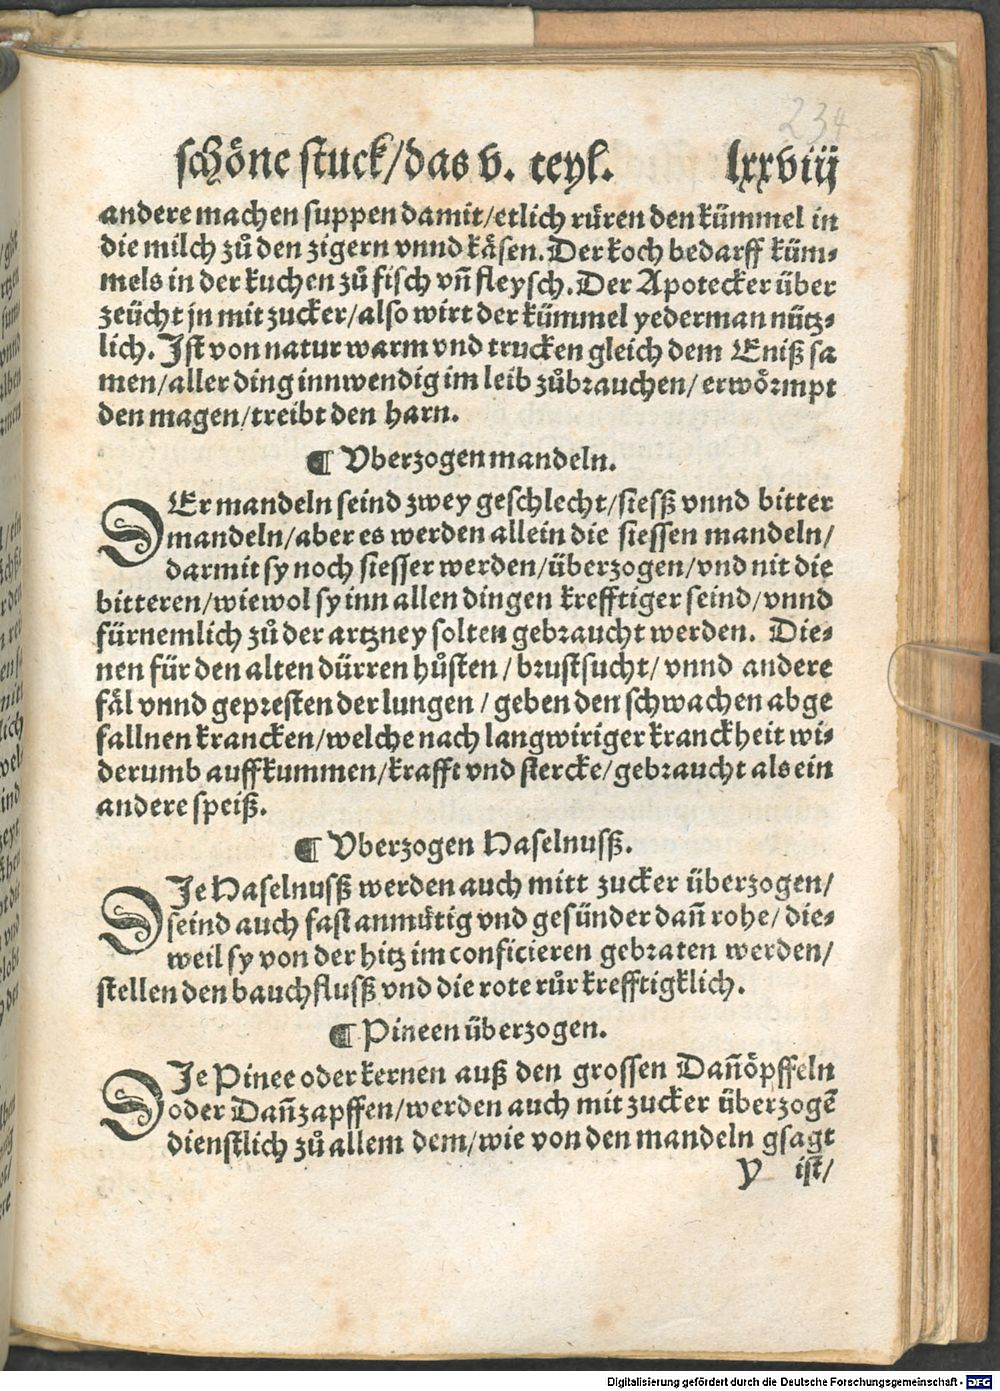 234
schöne stuck/das v. teyl. lxxviij
andere machen suppen damit/etlich rüren den kümmel in
die milch zů den zigern vnnd käsen. Der koch bedarff küm-
mels in der kuchen zů fisch vñ fleysch. Der Apotecker über
zeücht jn mit zucker/also wirt der kümmel yederman nütz-
lich. Ist von natur warm vnd trucken gleich dem Eniß sa
men/aller ding innwendig im leib zůbrauchen/ erwörmpt
den magen/treibt den harn.
¶ Vberzogen mandeln.
DEr mandeln seind zwey geschlecht/siesß vnnd bitter
mandeln/aber es werden allein die siessen mandeln/
darmit sy noch siesser werden/überzogen/vnd nit die
bitteren/wiewol sy inn allen dingen krefftiger seind/vnnd
fürnemlich zů der artzney solten gebraucht werden. Die-
nen für den alten dürren hůsten/ brustsucht/ vnnd andere
fäl vnnd gepresten der lungen/ geben den schwachen abge
fallnen krancken/welche nach langwiriger kranckheit wi-
derumb auffkummen/krafft vnd stercke/gebraucht als ein
andere speiß.
¶ Vberzogen Haselnusß.
DIe Haselnusß werden auch mitt zucker überzogen/
seind auch fast anmütig vnd gesünder dañ rohe/ die-
weil sy von der hitz im conficieren gebraten werden/
stellen den bauchflusß vnd die rote růr krefftigklich.
¶ Pineen überzogen.
DIe Pinee oder kernen auß den grossen Dañöpffeln
oder Dañzapffen/werden auch mit zucker überzogẽ
dienstlich zů allem dem/wie von den mandeln gsagt
y ist/
Digitalisierung gefördert durch die Deutsche Forschungsgemeinschaft - DFG